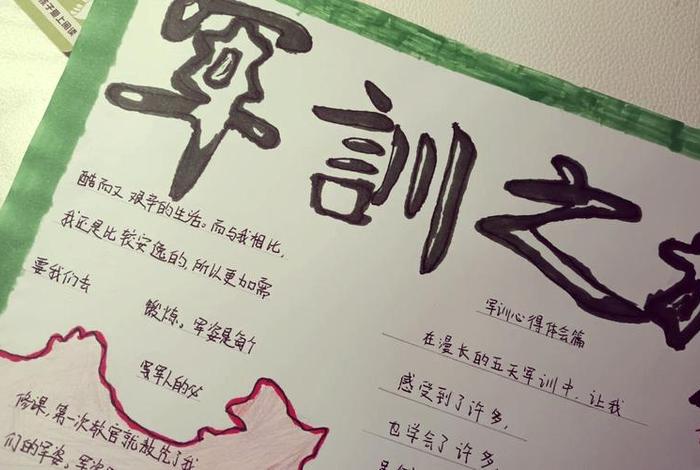 孩子爱上阅读
軍訓之
酷而又艰辛的生活。而与我相比,
我还是比较安逸的,所以更加需
要我们去
锻炼。军姿是每个
军人的必
修课,第一次教官就放先了我
们的军姿。军姿
军训心得体会篇
在漫长的五天军训中,让我
感受到了许多,
也学会了许多